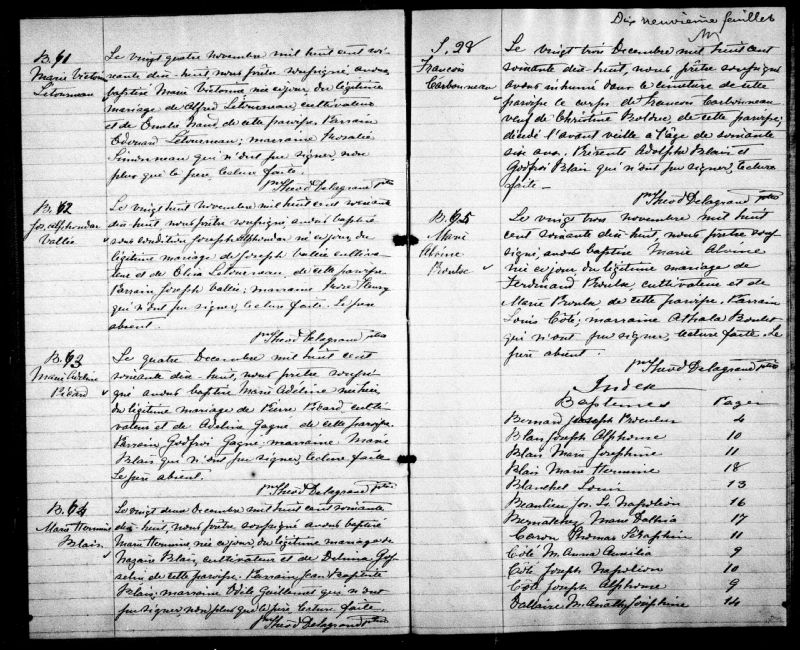 B. 61
Marie Victoria
Létourneau
Le vingt quatre novembre mil huit cent soi-
xante dix-huit, nous prêtre soussigné avons
baptisé Marie Victorine née ce jour du légitime
mariage de Alfred Létourneau, cultivateur
et de Emélie Nau, de cette paroisse. Parrain
Edouard Létourneau; marraine Rosalie
Simoneau qui n'ont pu signer, non
plus que le père lecture faite.
Theod Delagrand ptre
B. 62
Jos. Alphondor
Vallée
Le vingt huit novembre mil huit cent soixante
dix-huit, nous prêtre soussigné avons baptisé
sous condition Joseph Alphondor né ce jour, du
légitime mariage de Joseph Vallée cultiva-
teur et de Eliza Létourneau, de cette paroisse
Parrain Joseph Vallée; marraine Fleury
qui n'ont pu signer, lecture faite. Le père
absent.
Theod Delagrand ptre
B. 63
Marie Adeline
Picard
Le quatre Decembre mil huit cent
soixante dix-huit, nous prêtre soussi-
gné avons baptisé Marie Adéline née hier
du légitime mariage de Pierre Picard, culti-
vateur et de Adelia Gagné de cette paroisse.
Parrain Godfroi Gagné, marraine Marie
Blais qui n'ont pu signer, lecture faite
Le père absent.
Theod Delagrand ptre
B. 64
Marie Hermine
Blais
Le vingt deux Decembre mil huit cent soixante
dix-huit, nous prêtre soussigné avons baptisé
Marie Hermine née ce jour du légitime mariage de
Nazaire Blais, cultivateur et de Delvina Gos-
selin de cette paroisse. Parrain Jean Baptiste
Blais; marraine Odile Guillemet qui n'ont
pu signer, non plus que le père lecture faite.
Theod Delagrand ptre
Dix neuvième feuillet
S. 28
Francois
Carbonneau
Le vingt trois Decembre mil huit cent
soixante dix-huit, nous, prêtre soussigné
avons inhumé dans le cimetière de cette
paroisse le corps de Francois Carbonneau
veuf de Christine Bolduc, de cette paroisse;
décédé l'avant veille à l'âge de soixante
six ans. Présents Adolphe Blais et
Godfroi Blais qui n'ont pu signer, lecture
faite —
Theod Delagrand ptre
B. 65
Marie
Alvine
Boulet
Le vingt trois novembre mil huit
cent soixante dix-huit, nous prêtre sous-
signé, avons baptisé Marie Alvine
née ce jour du légitime mariage de
Ferdinand Boulet, cultivateur et de
Marie Proulx de cette paroisse. Parrain
Louis Côté; marraine Athala Boulet
qui n'ont pu signer, lecture faite. Le
père absent.
Theod Delagrand ptre
Index
Baptêmes Pages
Bernard Joseph 4
Blais Joseph Alphonse 10
Blais Marie Josephine 11
Blais Marie Hermine 18
Blanchet Louis 13
Beaulieu Jos. Ls. Napoléon 16
Bernatchez Marie Dalhia 17
Caron Thomas Séraphin 11
Côté M. Anna Aurélia 9
Côté Joseph Napoléon 10
Côté Joseph Alphonse 9
Dallaire M. Josephine 14